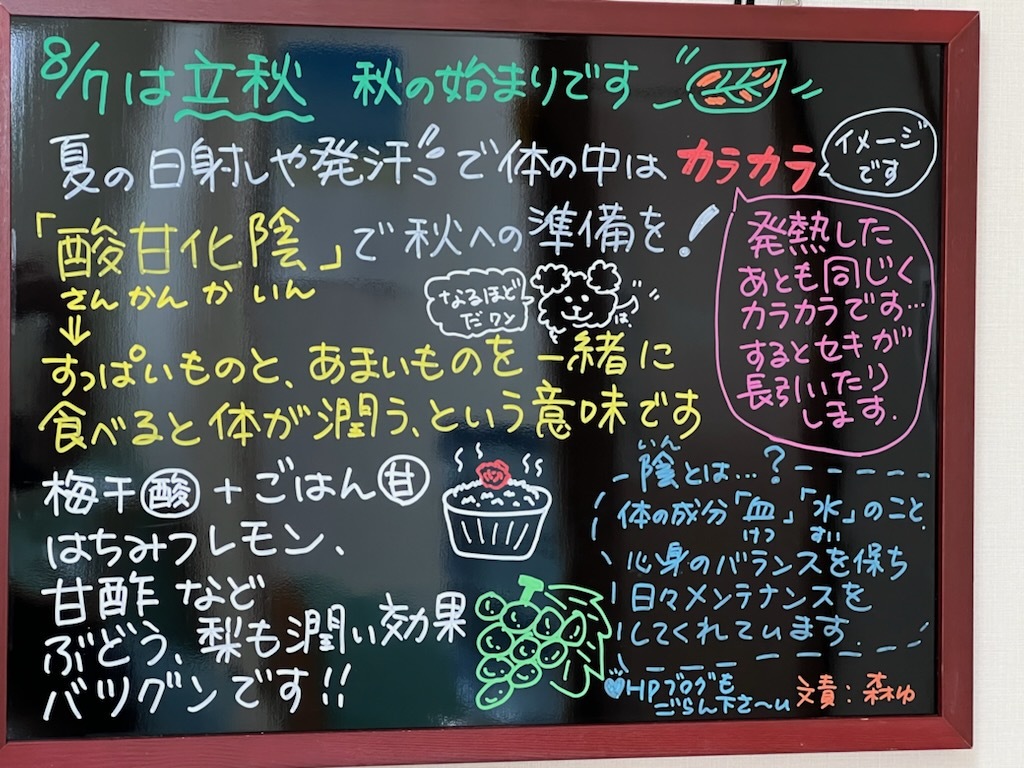 8/7は立秋 秋の始まりです
夏の日射しや発汗で体の中はカラカラ
イメージ
です
「酸甘化陰」で秋への準備を!
さんかんかいん
発熱した
あとも同じく
カラカラです…
するとセキが
長引いたり
します.
なるほど
だワン
は、
↓
すっぱいものと、あまいものを一緒に
食べると体が潤う、という意味です
梅干酸+ごはん甘
はちみつレモン、
甘酢など
ぶどう、梨も潤い効果
バツグンです!!
いん
陰とは…?
体の成分「血」「水」のこと
けつ すい
心身のバランスを保ち
日々メンテナンスを
してくれています.
♡HPブログも
ごらん下さ〜い
文責:森ゆ